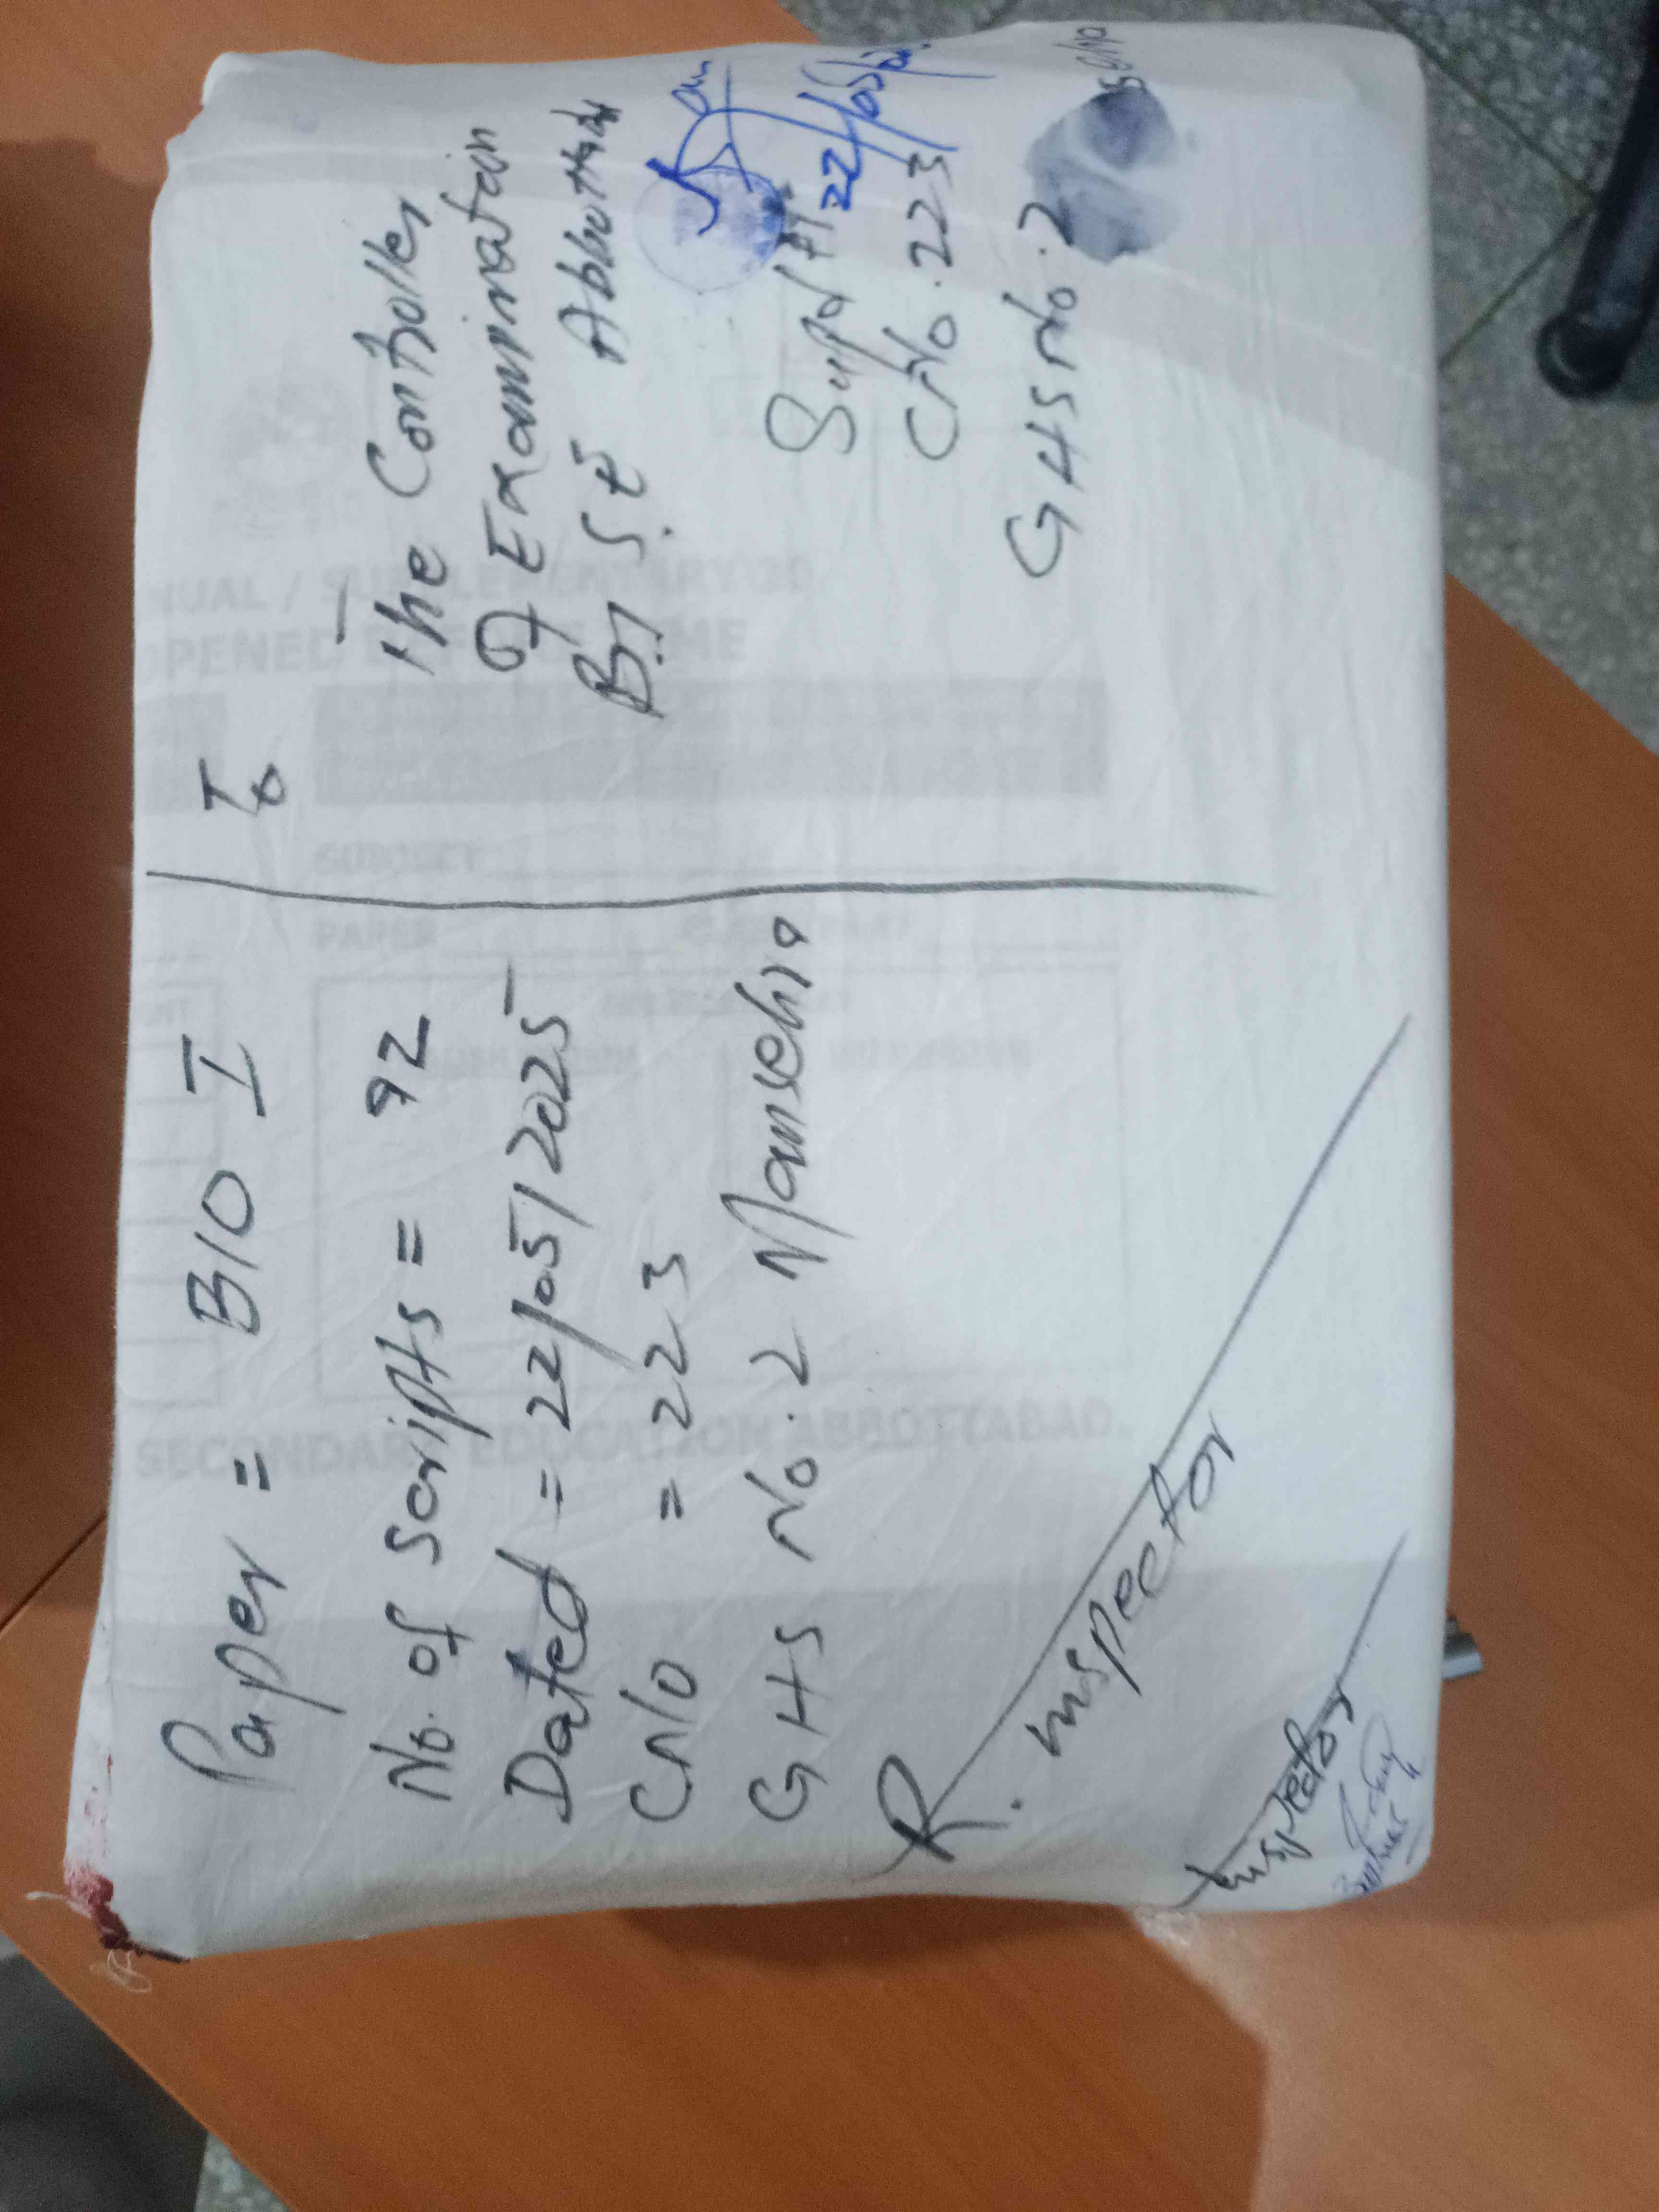 Paper = BIO I
No. of scripts = 92
Dated = 22/05/2025
C/No = 223
GHS No. 2 Mansehra
R. Inspector
Inspector
To
The Controller
of Examination
B.I.S.E Abbottabad
Supdtt
22/05/
C/No. 223
GHS No. 2
NUAL / SUPPLEMENTARY 20
OPENED BEFORE TIME
SUBJECT
PAPER
SECONDARY EDUCATION ABBOTTABAD.